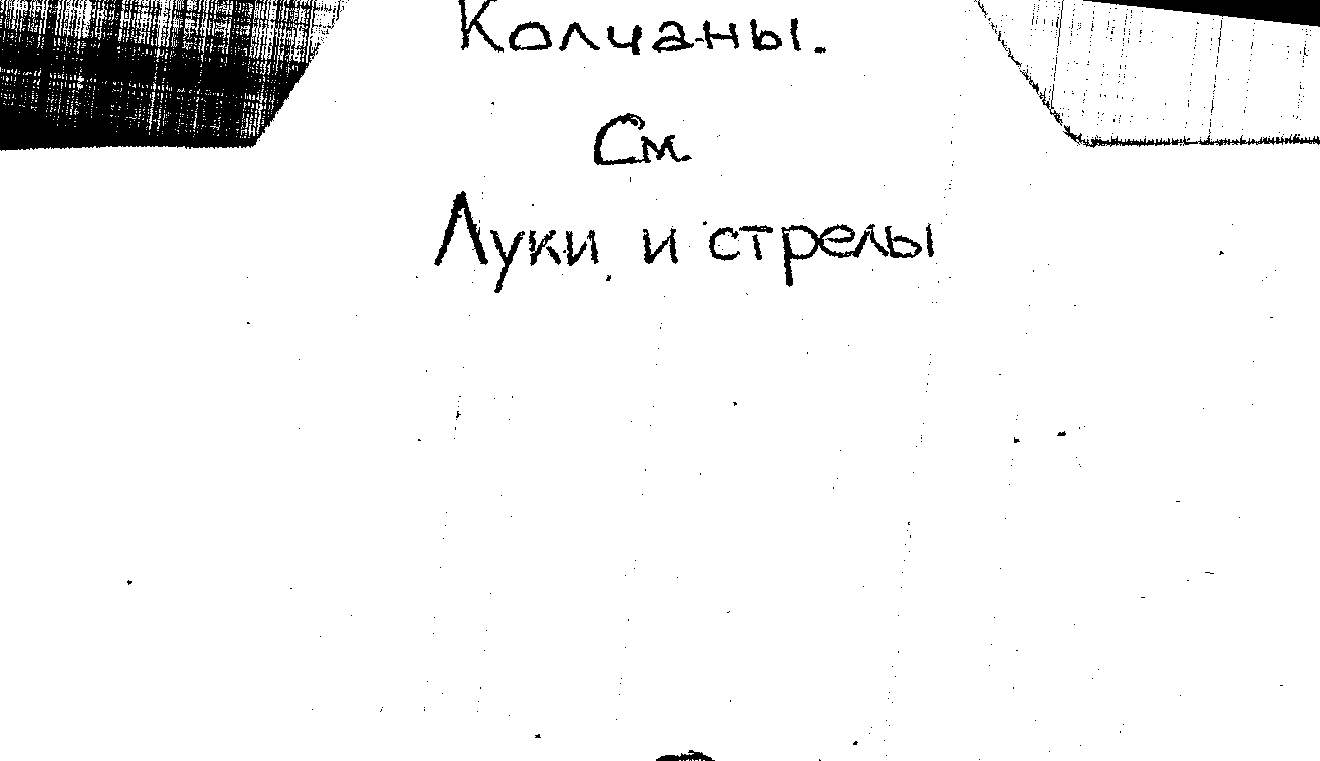 Колчаны.
См.
Луки и стрелы